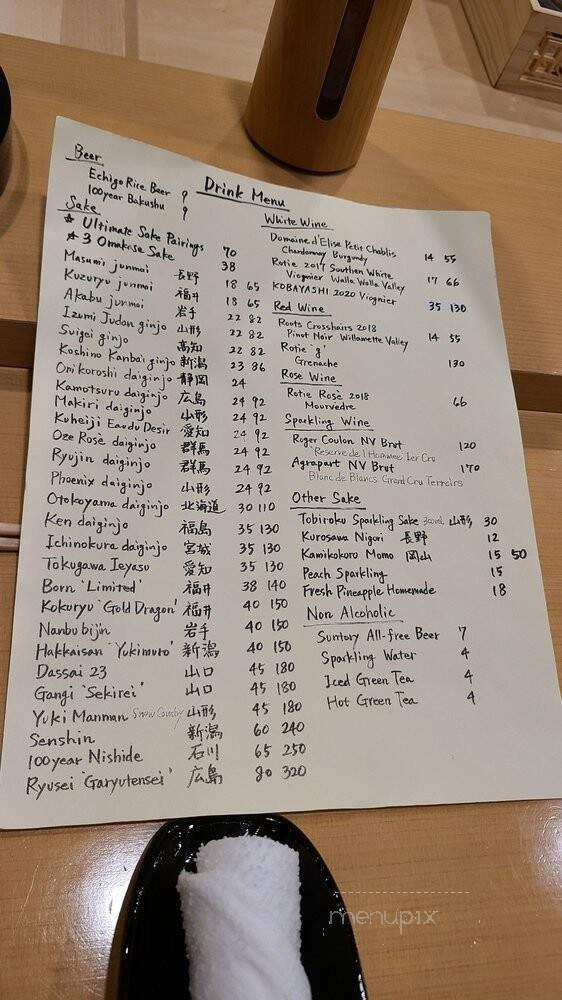 Drink Menu
Beer
Echigo Rice Beer 9
100year Bakushu 9
Sake
★ Ultimate Sake Pairings 70
★ 3 Omakase Sake 38
Masumi junmai 長野 18 65
Kuzuryu junmai 福井 18 65
Akabu junmai 岩手 22 82
Izumi Judan ginjo 山形 22 82
Suigei ginjo 高知 22 82
Koshino Kanbai ginjo 新潟 23 86
Onikoroshi daiginjo 静岡 24
Kamotsuru daiginjo 広島 24 92
Makiri daiginjo 山形 24 92
Kuheiji Eau du Desir 愛知 24 92
Oze Rosè daiginjo 群馬 24 92
Ryujin daiginjo 群馬 24 92
Phoenix daiginjo 山形 24 92
Otokoyama daiginjo 北海道 30 110
Ken daiginjo 福島 35 130
Ichinokura daiginjo 宮城 35 130
Tokugawa Ieyasu 愛知 35 130
Born 'Limited' 福井 38 140
Kokuryu 'Gold Dragon' 福井 40 150
Nanbu bijin 岩手 40 150
Hakkaisan 'Yukimuro' 新潟 40 150
Dassai 23 山口 45 180
Gangi 'Sekirei' 山口 45 180
Yuki Manman Snow Country 山形 45 180
Senshin 新潟 60 240
100year Nishide 石川 65 250
Ryusei 'Garyutensei' 広島 80 320
White Wine
Domaine d'Elise Petit Chablis
Chardonnay Burgundy 14 55
Rotie 2017 Southern White
Viognier Walla Walla Valley 17 66
KOBAYASHI 2020 Viognier 35 130
Red Wine
Roots Crosshairs 2018
Pinot Noir Willamette Valley 14 55
Rotie 'g'
Grenache 130
Rose Wine
Rotie Rosè 2018
Mourvedre 66
Sparkling Wine
Roger Coulon NV Brut 120
Reserve de l'Hommee 1er Cru
Agrapart NV Brut 170
Blanc de Blancs Grand Cru Terroirs
Other Sake
Tobiroku Sparkling Sake 300ml 山形 30
Kurosawa Nigori 長野 12
Kamikokoro Momo 岡山 15 50
Peach Sparkling 15
Fresh Pineapple Homemade 18
Non Alcoholic
Suntory All-free Beer 7
Sparkling Water 4
Iced Green Tea 4
Hot Green Tea 4
menupix